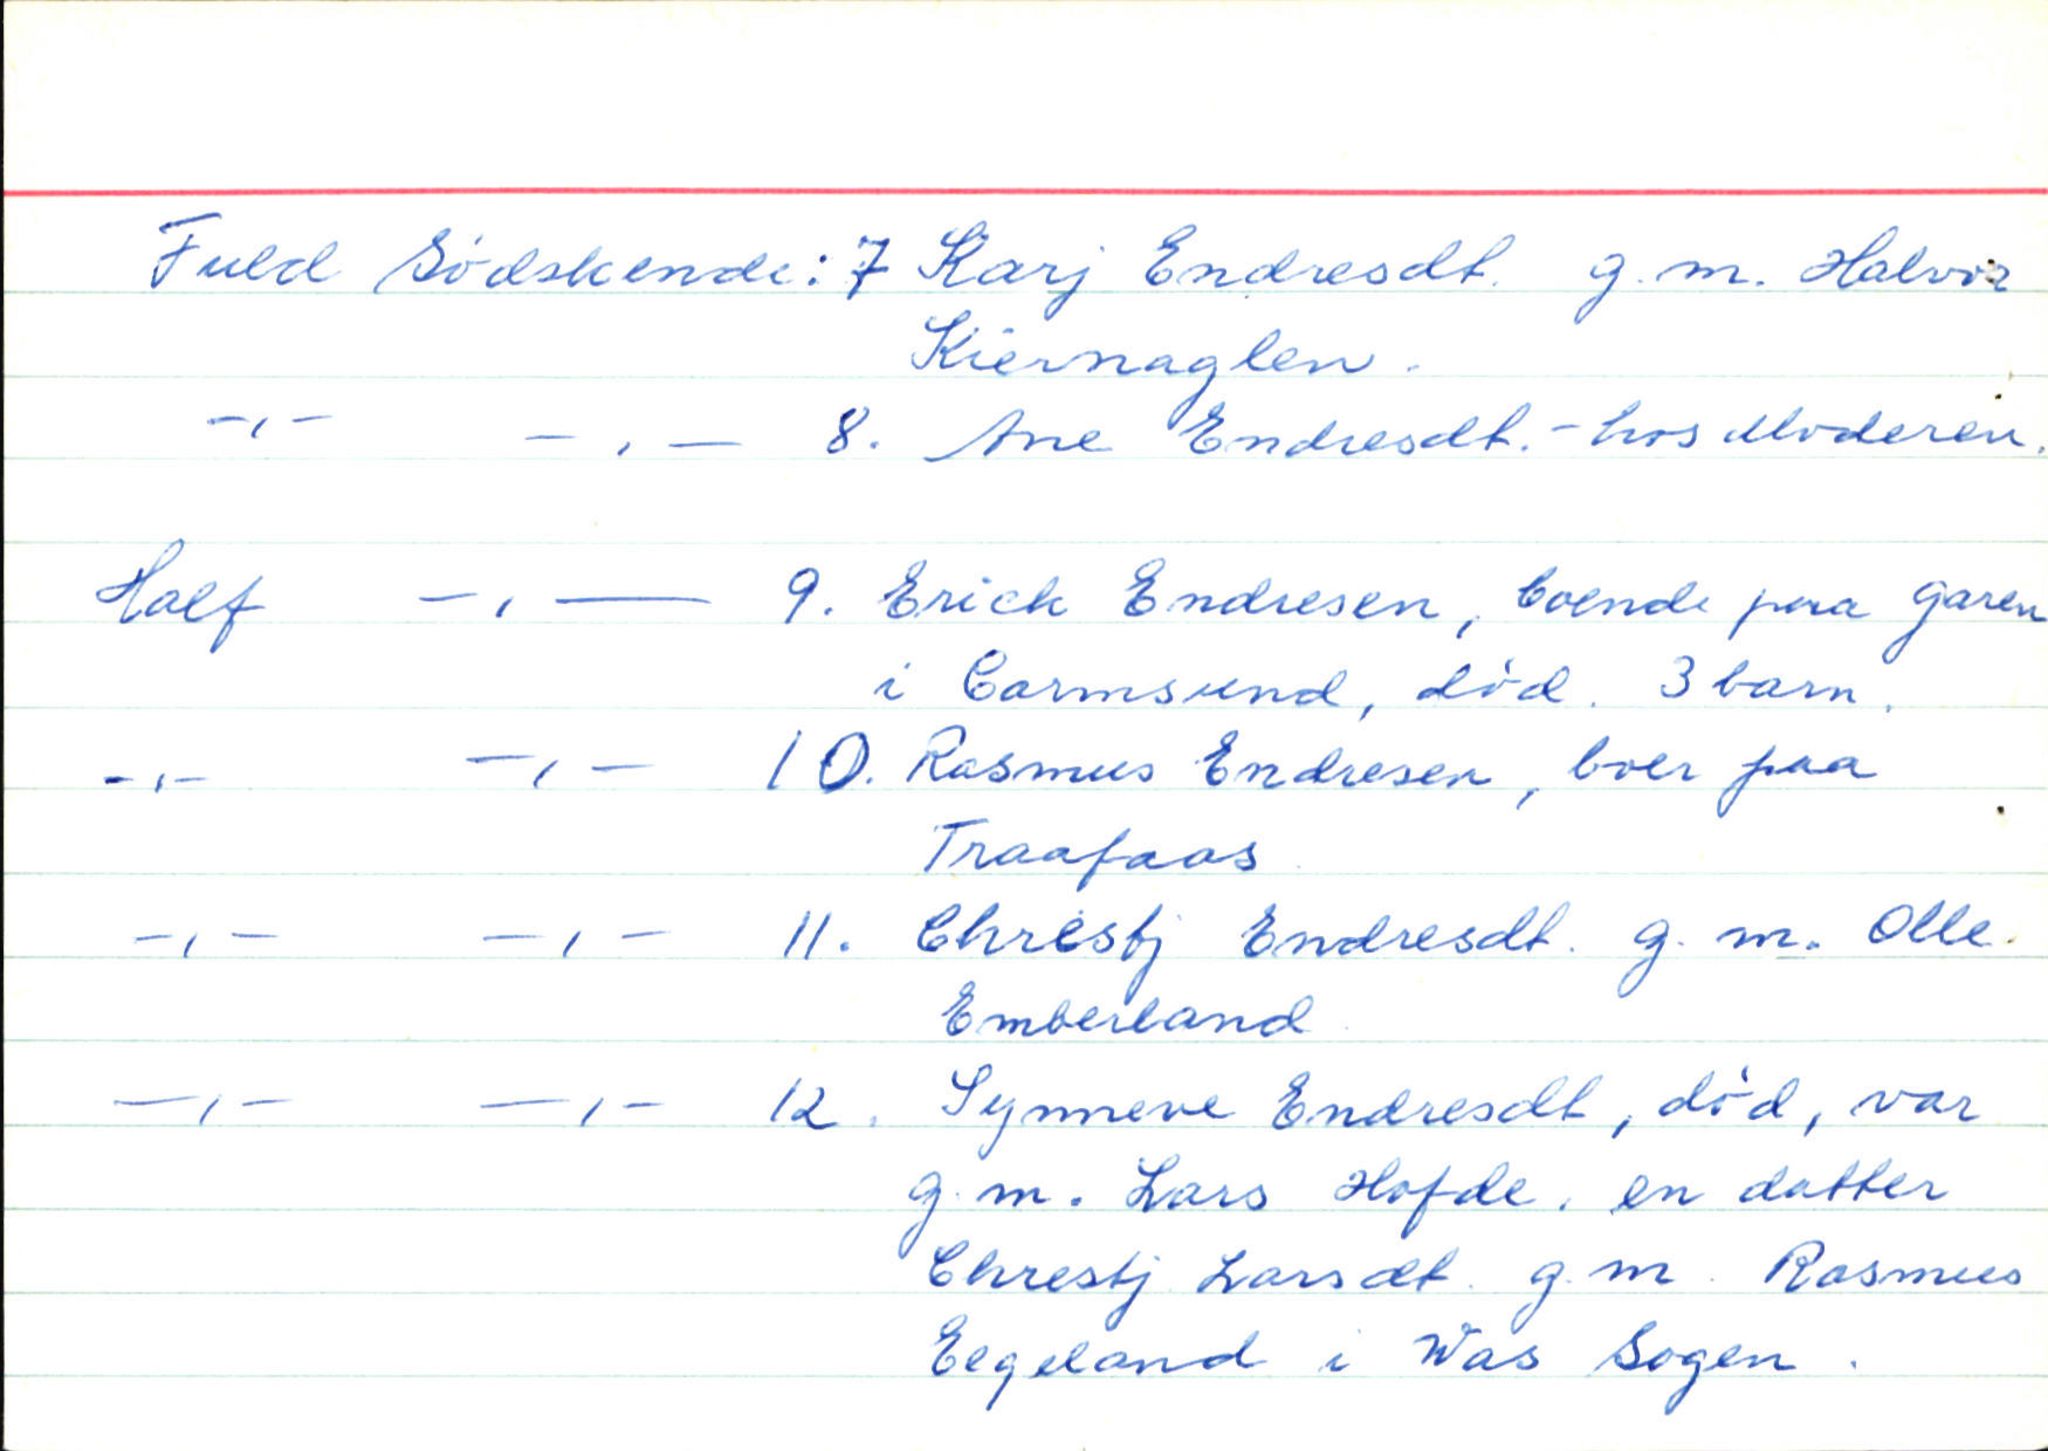 Fuld Sødskende: 7 Karj Endresdt. g. m. Halvor
Kiernaglen.
-,- -,- 8. Ane Endresdt. - hos Moderen.
Half -,- 9. Erick Endresen, boende paa Garen
i Carmsund, død. 3 barn.
-,- -,- 10. Rasmus Endresen, boer paa
Traafaas
-,- -,- 11. Christj Endresdt. g. m. Olle
Emberland
-,- -,- 12. Synneve Endresdt, død, var
g. m. Lars Hofde. en datter
Chrestj Larsdt. g. m. Rasmus
Eegeland i Was Sogen.